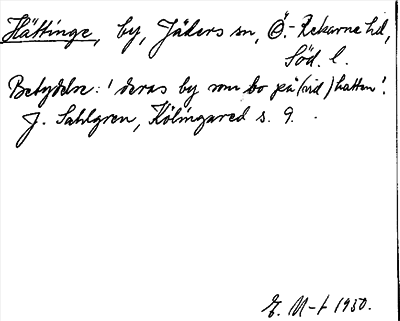 Hättinge, by, Jäders sn, Ö.-Rekarne hd,
Söd. l.
Betydelse: 'deras by som bo på (vid) hatten'.
J. Sahlgren, Kölingared s. 9.
E. N-t 1950.